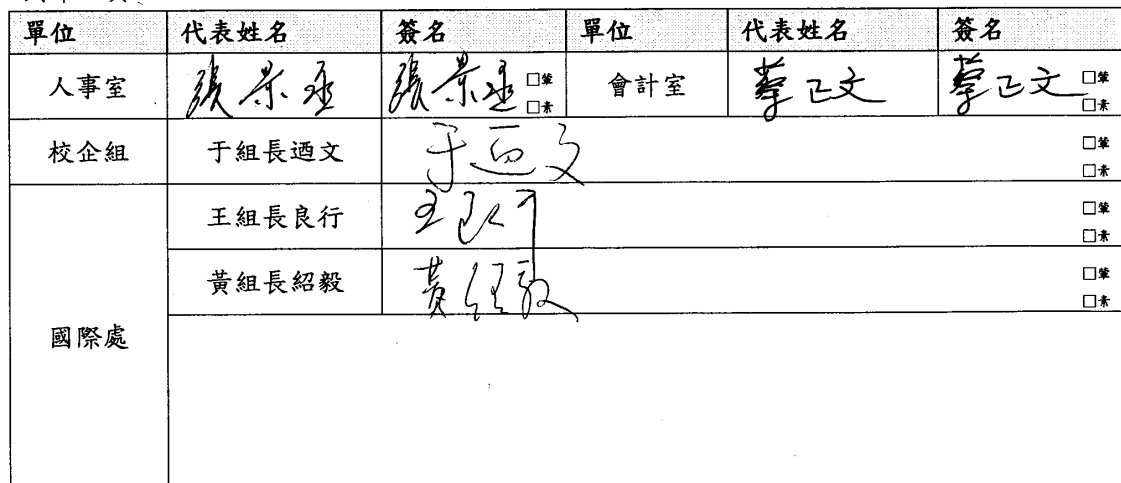 單位 代表姓名 簽名 單位 代表姓名 簽名
人事室 張景丞 張景丞 □葷 □素 會計室 蔡正文 蔡正文 □葷 □素
校企組 于組長迺文 于迺文 □葷 □素
國際處
王組長良行 王良行 □葷 □素
黃組長紹毅 黃紹毅 □葷 □素